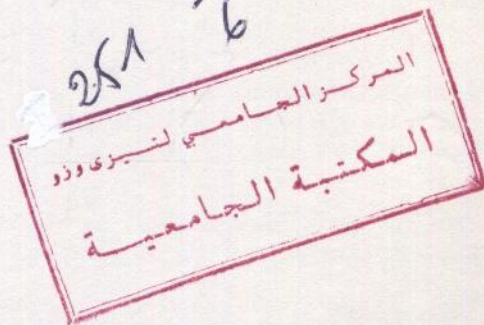 251 6
المركز الجامعي لتيزي وزو
المكتبة الجامعية